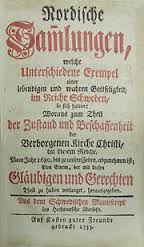 Nordische
Sammlungen,
welche
Unterschiedene Exempel
einer
lebendigen und wahren Gottseligkeit,
im Reiche Schweden,
in sich halten;
Woraus zum Theil
der Zustand und Beschaffenheit
der
Verborgenen Kirche Christi,
in diesem Reiche,
Vom Jahr 1690. bis zu unsern Zeiten, abzunehmen ist;
Von Einem, der mit diesen
Gläubigen und Gerechten
Theil zu haben verlanget, herausgegeben.
Aus dem Schwedischen Manuscript
ins Hochteutsche übersetzt.
Auf Kosten guter Freunde
gedruckt 1755.